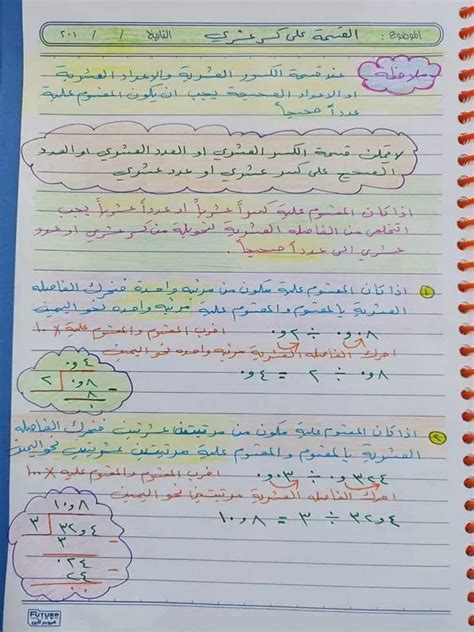 الموضوع: القسمة على كسر عشري التاريخ / / ٢٠١
ملاحظة
عند قسمة الكسور العشرية والاعداد العشرية
او الاعداد الصحيحة يجب ان يكون المقسوم علية
عدداً صحيحاً
لا يمكن قسمة الكسر العشري او العدد العشري او العدد
الصحيح على كسر عشري او عدد عشري
اذا كان المقسوم علية كسراً عشرياً او عدداً عشرياً يجب
التخلص من الفاصله العشرية لتحويلة من كسر عشري او عدد
عشري الى عدداً صحيحاً
١ اذا كان المقسوم علية مكون من مرتبه واحدة فنحرك الفاصله
العشرية بالمقسوم والمقسوم علية مرتبه واحده نحو اليمين
٠٫٠٨ ÷ ٠٫٢ اضرب المقسوم والمقسوم علية ×١٠
احرك الفاصلة العشرية مرتبه واحده نحو اليمين
٠٫٨ ÷ ٢ = ٠٫٤
٠٫٤
٢ ٠٫٨
٨
٢ اذا كان المقسوم علية مكون من مرتبتين عشرتين فنحرك الفاصله
العشرية بالمقسوم والمقسوم علية مرتبتين عشرتين نحو اليمين
اضرب المقسوم والمقسوم علية ×١٠٠
احرك الفاصلة العشرية مرتبتين نحو اليمين
٣٢٫٤ ÷ ٣ = ١٠٫٨
١٠٫٨
٣ ٣٢٫٤
٣
٠٢٤
٢٤
FUTURE